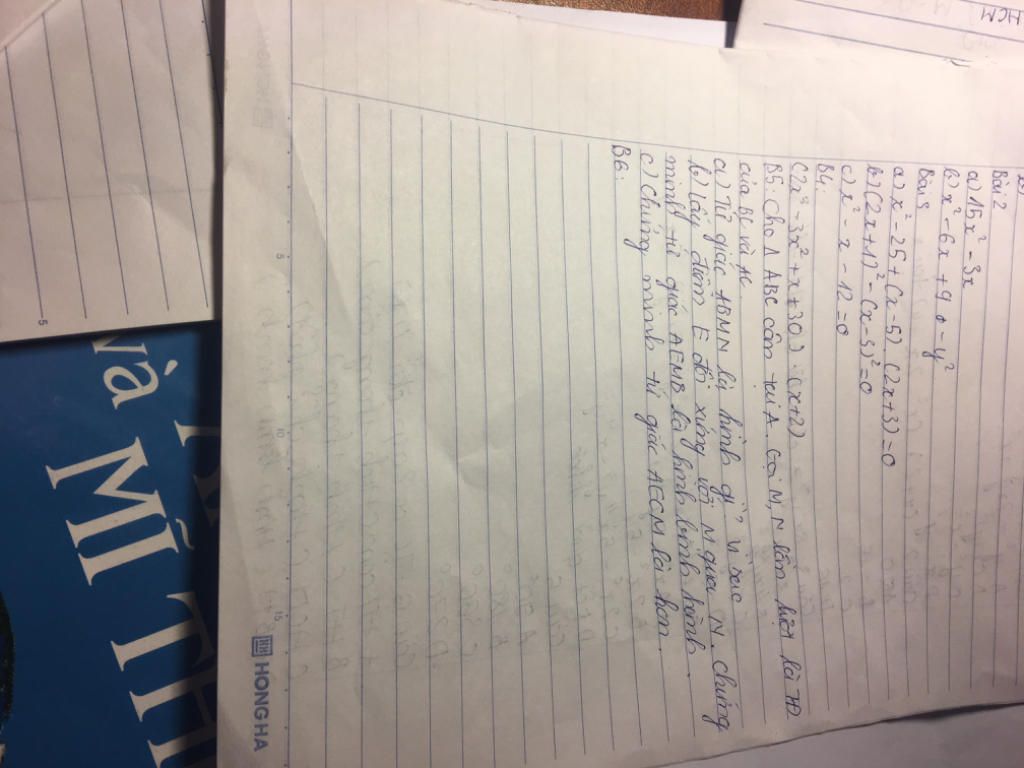 HCM
Bài 2
a) 15x² - 3x
b) x² - 6x + 9 - y²
Bài 3
a) x² - 25 + (x - 5) (2x + 3) = 0
b) (2x + 1)² - (x - 5)² = 0
c) x² - x - 12 = 0
B4:
(2x³ - 3x² + x + 30) : (x + 2)
B5: Cho Δ ABC cân tại A. Gọi M, N lần lượt là TĐ
của BC và AC
a) Tứ giác ABMN là hình gì? vì sao
b) Lấy điểm E đối xứng với M qua N. chứng
minh tứ giác AEMB là hình bình hành.
c) Chứng minh tứ giác AECM là hcn.
B6:
5
10
15
HONG HA
5
và
MĨ TH